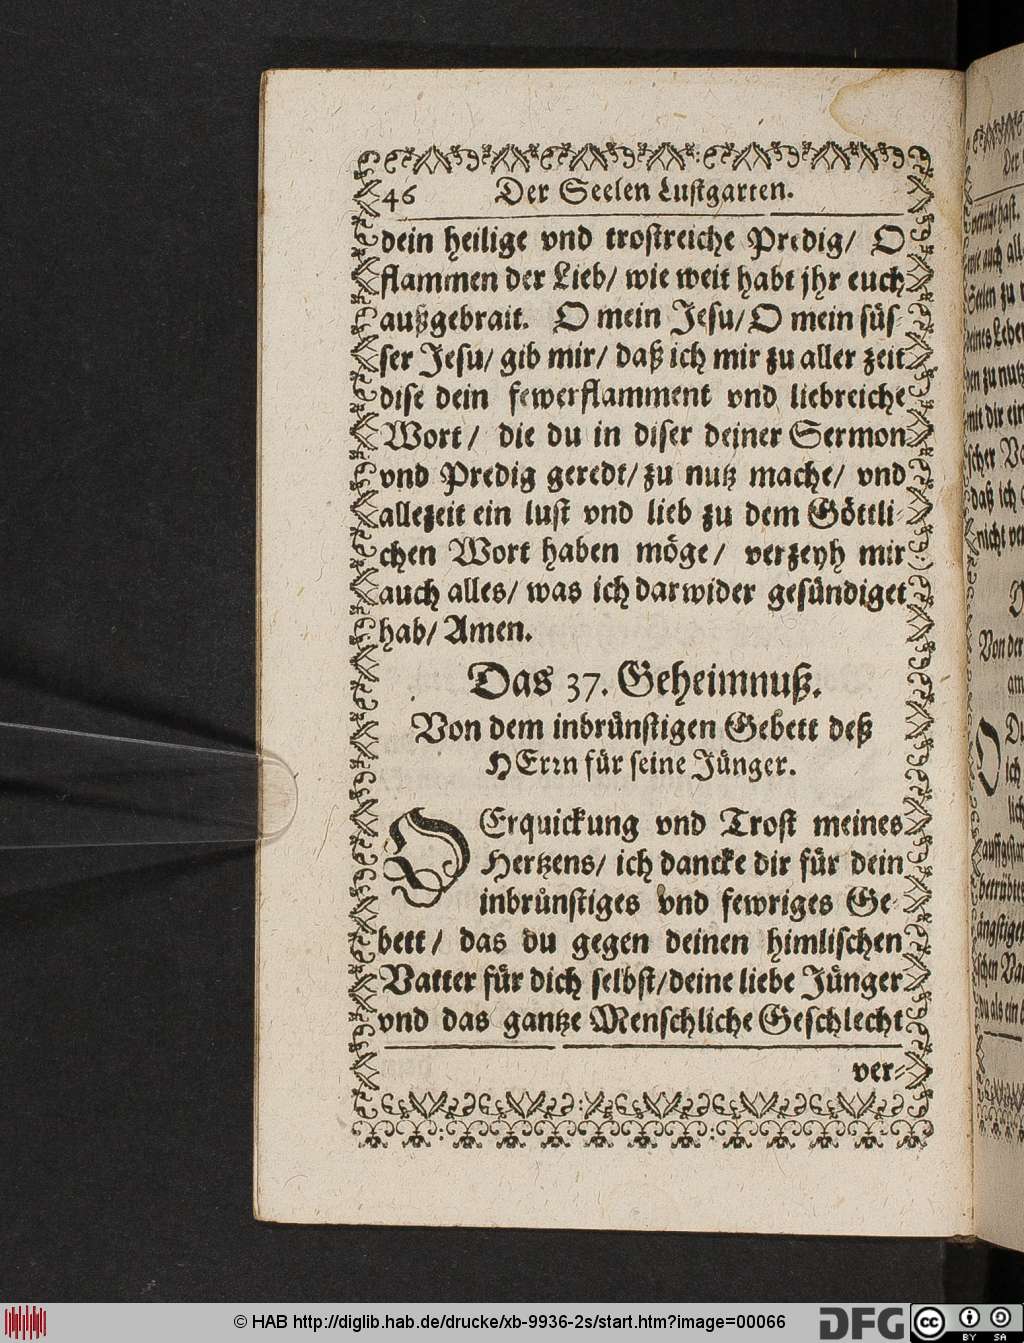 46 Der Seelen Lustgarten.
dein heilige vnd trostreiche Predig/ O
flammen der Lieb/ wie weit habt jhr euch
außgebrait. O mein Jesu/ O mein süs-
ser Jesu/ gib mir/ daß ich mir zu aller zeit
dise dein fewerflamment vnd liebreiche
Wort/ die du in diser deiner Sermon
vnd Predig geredt/ zu nutz mache/ vnd
allezeit ein lust vnd lieb zu dem Göttli-
chen Wort haben möge/ verzeyh mir
auch alles/ was ich darwider gesündiget
hab/ Amen.
Das 37. Geheimnuß.
Von dem inbrünstigen Gebett deß
HErrn für seine Jünger.
O Erquickung vnd Trost meines
Hertzens/ ich dancke dir für dein
inbrünstiges vnd fewriges Ge-
bett/ das du gegen deinen himlischen
Vatter für dich selbst/ deine liebe Jünger
vnd das gantze Menschliche Geschlecht
ver-
© HAB http://diglib.hab.de/drucke/xb-9936-2s/start.htm?image=00066
DFG
cc BY SA